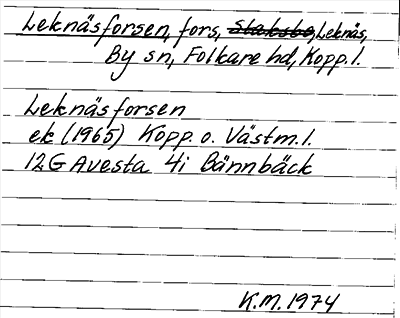 Leknäsforsen, fors, Staksbo, Leknäs,
By sn, Folkare hd, Kopp. l.
Leknäsforsen
ek (1965) Kopp. o. Västm. l.
12G Avesta 4i Bännbäck
K.M. 1974